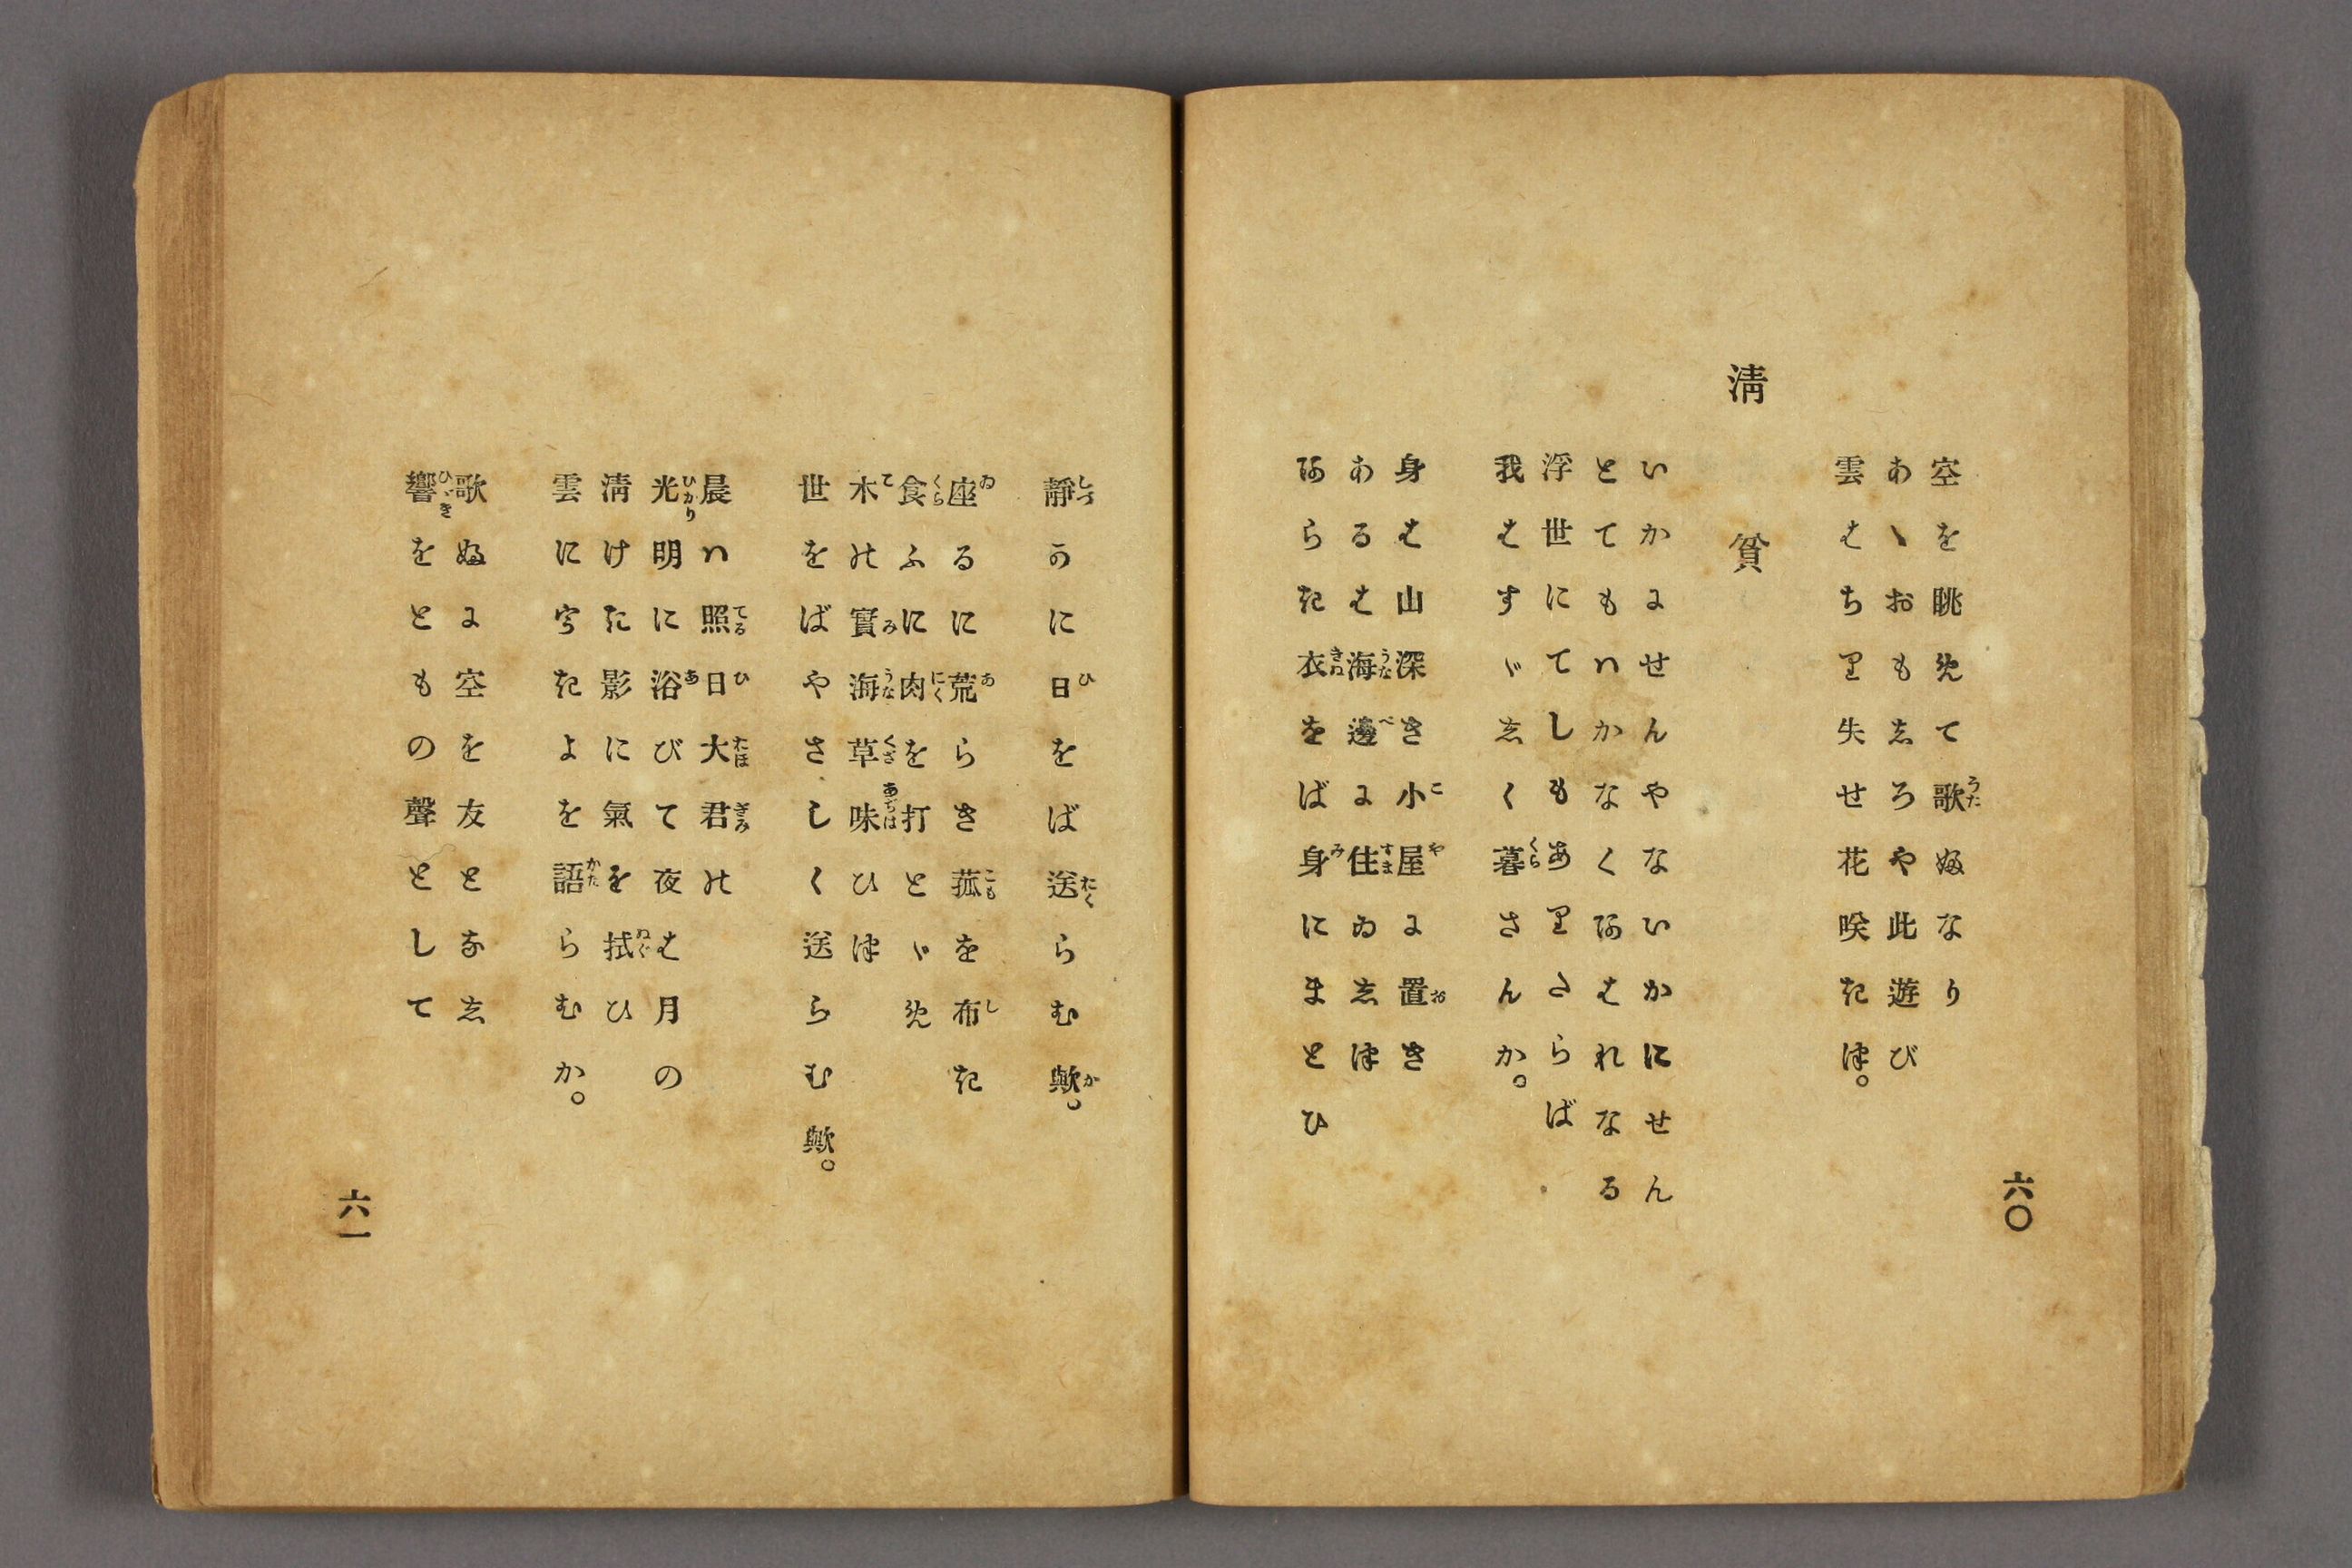 六〇
空を眺めて歌ふなり
あゝおもしろや此遊び
雲はちり失せ花咲きつ。
淸貧
いかにせんやないかにせん
とてもハかなくあはれなる
浮世にてしもありさらば
我はすゞしく暮さんか。
身は山深き小屋に置き
あるは海邊に住ゐしつ
あらき衣をば身にまとひ
靜かに日をば送らむ歟。
座るに荒らき菰を布き
食ふに肉を打とゞめ
木の實海草味ひつ
世をばやさしく送らむ歟。
晨ハ照日大君の
光明に浴びて夜は月の
淸けき影に氣を拭ひ
雲にうきよを語らむか。
歌ふに空を友となし
響をともの聲として
六一